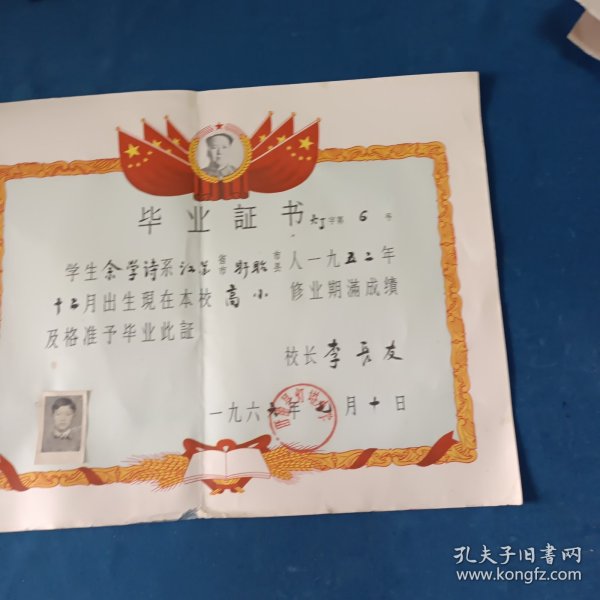 毕业証书 灯字第6号
学生余学诗系江苏省市盱眙市县人一九五二年
十二月出生現在本校高小修业期滿成績
及格准予毕业此証
校长李長友
一九六六年七月十日
孔夫子旧书网
www.kongfz.com